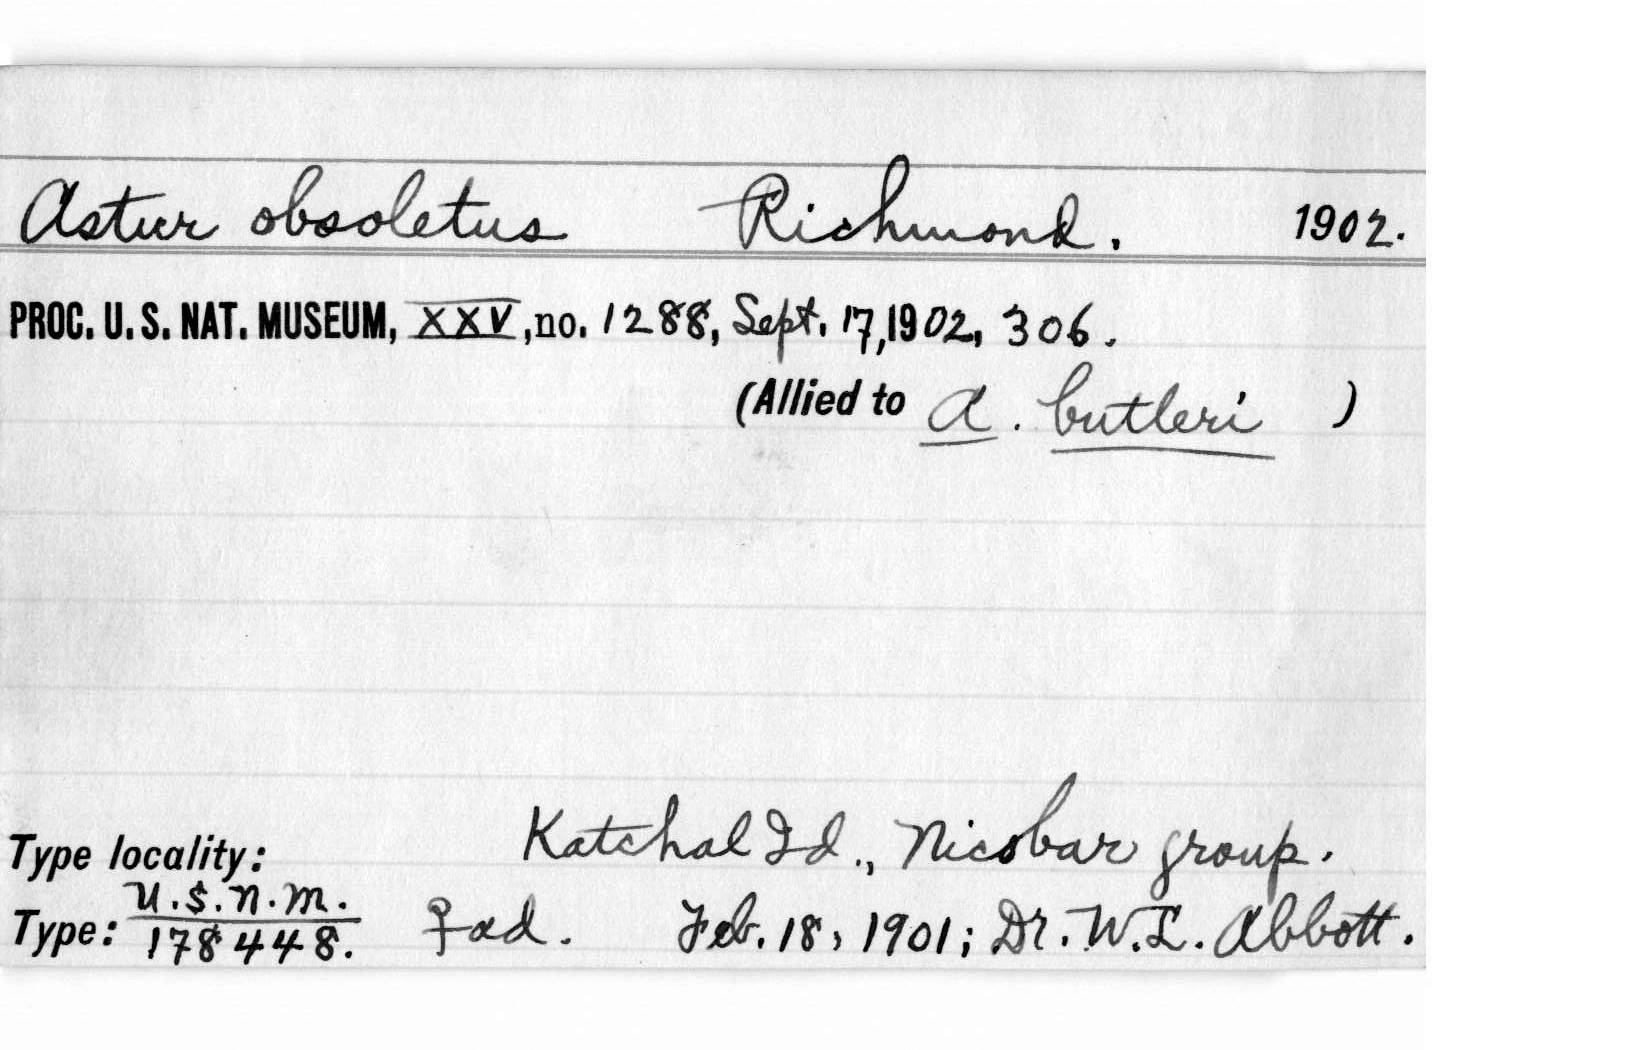 Astur obsoletus Richmond. 1902.
PROC. U. S. NAT. MUSEUM, XXV, no. 1288, Sept. 17, 1902, 306.
(Allied to A. butleri )
Type locality: Katchal Id., Nicobar group.
U.S.N.M.
Type: 178448. ♀ ad. Feb. 18, 1901; Dr. W. L. Abbott.